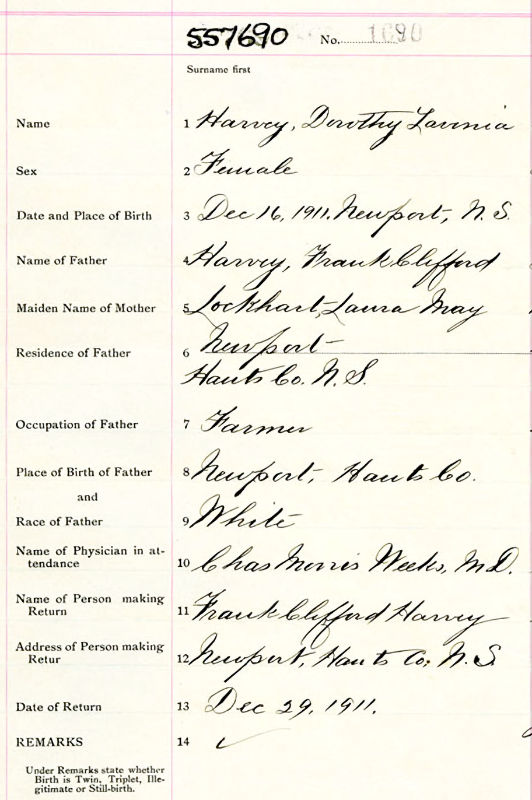 557690 No. 1690
Surname first
Name 1 Harvey, Dorothy Lavinia
Sex 2 Female
Date and Place of Birth 3 Dec 16, 1911. Newport, N.S.
Name of Father 4 Harvey, Frank Clifford
Maiden Name of Mother 5 Lockhart, Laura May
Residence of Father 6 Newport
Hants Co. N.S.
Occupation of Father 7 Farmer
Place of Birth of Father 8 Newport, Hants Co.
and
Race of Father 9 White
Name of Physician in at-
tendance 10 Chas Morris Weeks, M.D.
Name of Person making
Return 11 Frank Clifford Harvey
Address of Person making
Retur 12 Newport, Hants Co; N.S.
Date of Return 13 Dec 29, 1911.
REMARKS 14
Under Remarks state whether
Birth is Twin, Triplet, Ille-
gitimate or Still-birth.